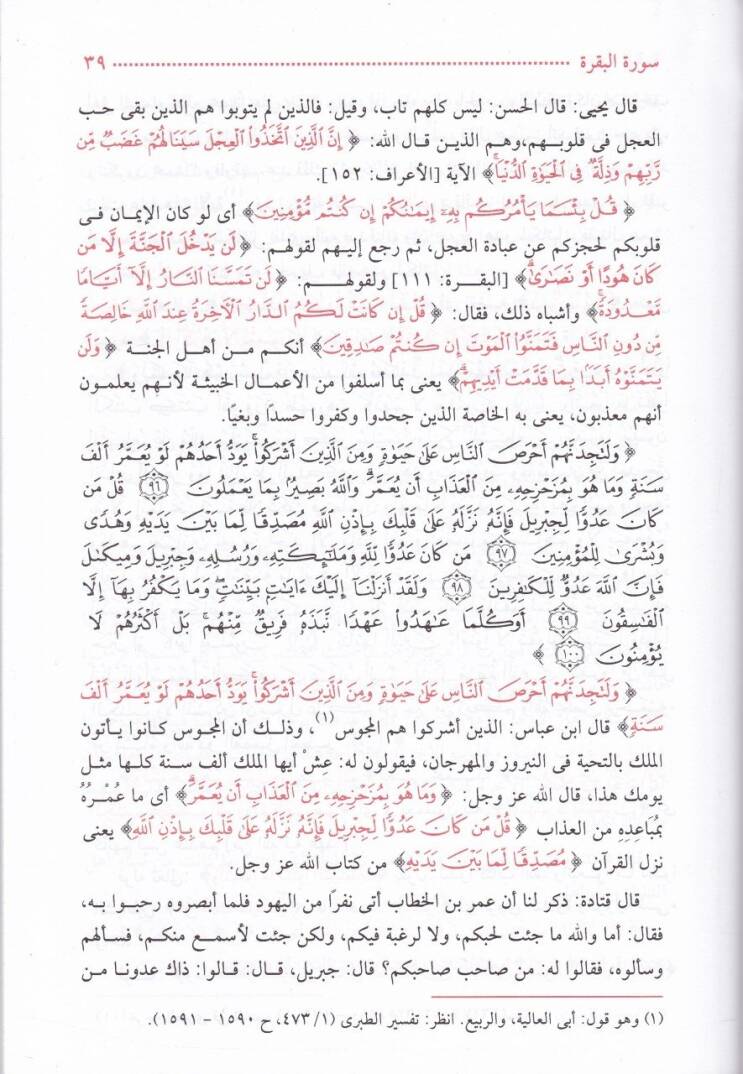 سورة البقرة ........................................................ ٣٩
قال يحيى: قال الحسن: ليس كلهم تاب، وقيل: فالذين لم يتوبوا هم الذين بقى حب
العجل فى قلوبهم،وهم الذين قال الله: ﴿ إِنَّ ٱلَّذِينَ ٱتَّخَذُوا۟ ٱلْعِجْلَ سَيَنَالُهُمْ غَضَبٌ مِّن
رَّبِّهِمْ وَذِلَّةٌ فِى ٱلْحَيَوٰةِ ٱلدُّنْيَا﴾ الآية [الأعراف: ١٥٢].
﴿ قُلْ بِئْسَمَا يَأْمُرُكُم بِهِۦٓ إِيمَـٰنُكُمْ إِن كُنتُم مُّؤْمِنِينَ﴾ أى لو كان الإيمان فى
قلوبكم لحجزكم عن عبادة العجل، ثم رجع إليهم لقولهم: ﴿لَن يَدْخُلَ ٱلْجَنَّةَ إِلَّا مَن
كَانَ هُودًا أَوْ نَصَـٰرَىٰ﴾ [البقرة: ١١١] ولقولهم: ﴿لَن تَمَسَّنَا ٱلنَّارُ إِلَّآ أَيَّامًا
مَّعْدُودَةً﴾ وأشباه ذلك، فقال: ﴿ قُلْ إِن كَانَتْ لَكُمُ ٱلدَّارُ ٱلْـَٔاخِرَةُ عِندَ ٱللَّهِ خَالِصَةً
مِّن دُونِ ٱلنَّاسِ فَتَمَنَّوُا۟ ٱلْمَوْتَ إِن كُنتُمْ صَـٰدِقِينَ﴾ أنكم من أهل الجنة ﴿ وَلَن
يَتَمَنَّوْهُ أَبَدًۢا بِمَا قَدَّمَتْ أَيْدِيهِمْ﴾ يعنى بما أسلفوا من الأعمال الخبيثة لأنهم يعلمون
أنهم معذبون، يعنى به الخاصة الذين جحدوا وكفروا حسدًا وبغيًا.
﴿ وَلَتَجِدَنَّهُمْ أَحْرَصَ ٱلنَّاسِ عَلَىٰ حَيَوٰةٍ وَمِنَ ٱلَّذِينَ أَشْرَكُوا۟ يَوَدُّ أَحَدُهُمْ لَوْ يُعَمَّرُ أَلْفَ
سَنَةٍ وَمَا هُوَ بِمُزَحْزِحِهِۦ مِنَ ٱلْعَذَابِ أَن يُعَمَّرَ وَٱللَّهُ بَصِيرٌۢ بِمَا يَعْمَلُونَ ٩٦ قُلْ مَن
كَانَ عَدُوًّا لِّجِبْرِيلَ فَإِنَّهُۥ نَزَّلَهُۥ عَلَىٰ قَلْبِكَ بِإِذْنِ ٱللَّهِ مُصَدِّقًا لِّمَا بَيْنَ يَدَيْهِ وَهُدًى
وَبُشْرَىٰ لِلْمُؤْمِنِينَ ٩٧ مَن كَانَ عَدُوًّا لِّلَّهِ وَمَلَـٰٓئِكَتِهِۦ وَرُسُلِهِۦ وَجِبْرِيلَ وَمِيكَىٰلَ
فَإِنَّ ٱللَّهَ عَدُوٌّ لِّلْكَـٰفِرِينَ ٩٨ وَلَقَدْ أَنزَلْنَآ إِلَيْكَ ءَايَـٰتٍۭ بَيِّنَـٰتٍ وَمَا يَكْفُرُ بِهَآ إِلَّا
ٱلْفَـٰسِقُونَ ٩٩ أَوَكُلَّمَا عَـٰهَدُوا۟ عَهْدًا نَّبَذَهُۥ فَرِيقٌ مِّنْهُم بَلْ أَكْثَرُهُمْ لَا
يُؤْمِنُونَ ١٠٠ ﴾
﴿ وَلَتَجِدَنَّهُمْ أَحْرَصَ ٱلنَّاسِ عَلَىٰ حَيَوٰةٍ وَمِنَ ٱلَّذِينَ أَشْرَكُوا۟ يَوَدُّ أَحَدُهُمْ لَوْ يُعَمَّرُ أَلْفَ
سَنَةٍ﴾ قال ابن عباس: الذين أشركوا هم المجوس(١)، وذلك أن المجوس كانوا يأتون
الملك بالتحية فى النيروز والمهرجان، فيقولون له: عِشْ أيها الملك ألف سنة كلها مثل
يومك هذا، قال الله عز وجل: ﴿ وَمَا هُوَ بِمُزَحْزِحِهِۦ مِنَ ٱلْعَذَابِ أَن يُعَمَّرَ﴾ أى ما عُمْرُهُ
بمُبَاعِدِه من العذاب ﴿ قُلْ مَن كَانَ عَدُوًّا لِّجِبْرِيلَ فَإِنَّهُۥ نَزَّلَهُۥ عَلَىٰ قَلْبِكَ بِإِذْنِ ٱللَّهِ﴾ يعنى
نزل القرآن ﴿ مُصَدِّقًا لِّمَا بَيْنَ يَدَيْهِ﴾ من كتاب الله عز وجل.
قال قتادة: ذكر لنا أن عمر بن الخطاب أتى نفرًا من اليهود فلما أبصروه رحبوا به،
فقال: أما والله ما جئت لحبكم، ولا لرغبة فيكم، ولكن جئت لأسمع منكم، فسألهم
وسألوه، فقالوا له: من صاحب صاحبكم؟ قال: جبريل، قال: قالوا: ذاك عدونا من
(١) وهو قول: أبى العالية، والربيع. انظر: تفسير الطبرى (١/ ٤٧٣، ح ١٥٩٠ - ١٥٩١).